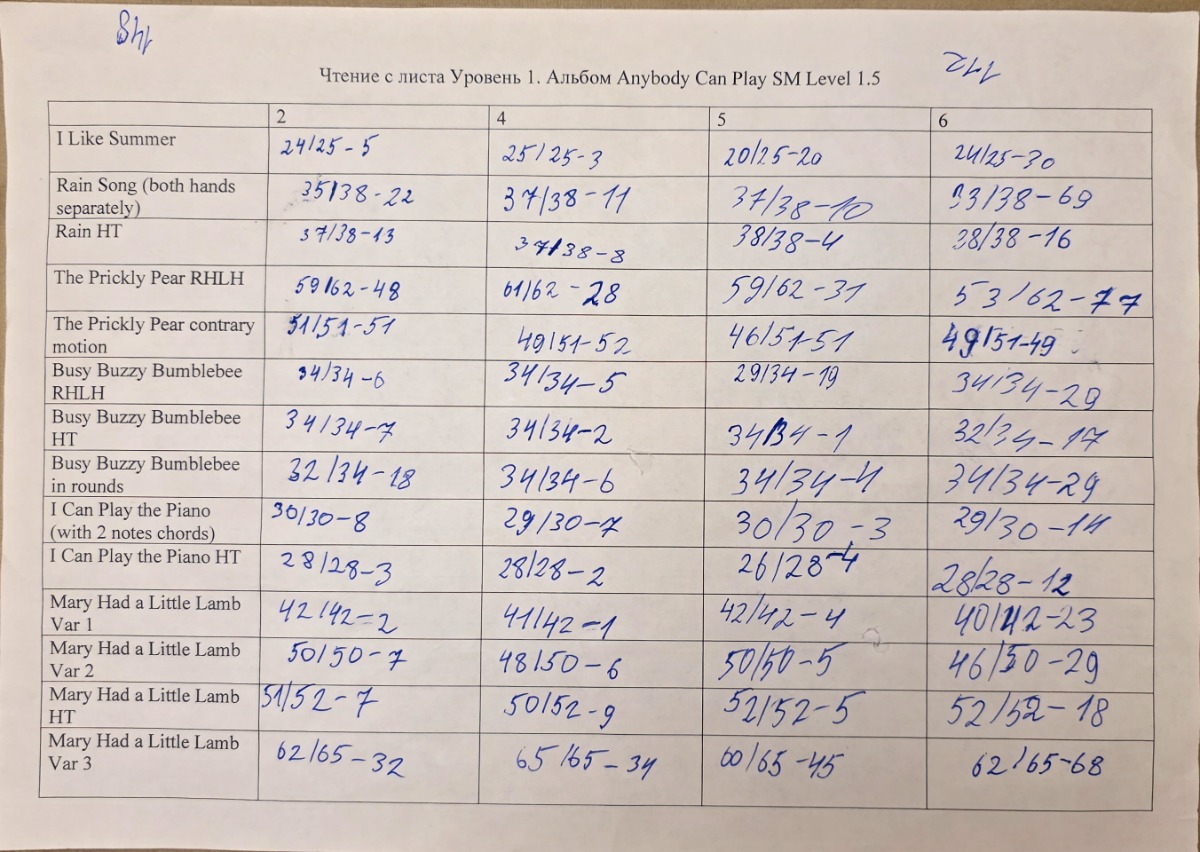 148
112
Чтение с листа Уровень 1. Альбом Anybody Can Play SM Level 1.5
2 4 5 6
I Like Summer 24/25-5 25/25-3 20/25-20 24/25-30
Rain Song (both hands 35/38-22 37/38-11 37/38-10 33/38-69
separately)
Rain HT 37/38-13 37/38-8 38/38-4 38/38-16
The Prickly Pear RHLH 59/62-48 61/62-28 59/62-31 53/62-77
The Prickly Pear contrary 51/51-51 49/51-52 46/51-51 49/51-49
motion
Busy Buzzy Bumblebee 34/34-6 34/34-5 29/34-19 34/34-29
RHLH
Busy Buzzy Bumblebee 34/34-7 34/34-2 34/34-1 32/34-17
HT
Busy Buzzy Bumblebee 32/34-18 34/34-6 34/34-4 34/34-29
in rounds
I Can Play the Piano 30/30-8 29/30-7 30/30-3 29/30-14
(with 2 notes chords)
I Can Play the Piano HT 28/28-3 28/28-2 26/28-4 28/28-12
Mary Had a Little Lamb 42/42-2 41/42-1 42/42-4 40/42-23
Var 1
Mary Had a Little Lamb 50/50-7 48/50-6 50/50-5 46/50-29
Var 2
Mary Had a Little Lamb 51/52-7 50/52-9 52/52-5 52/52-18
HT
Mary Had a Little Lamb 62/65-32 65/65-34 60/65-45 62/65-68
Var 3